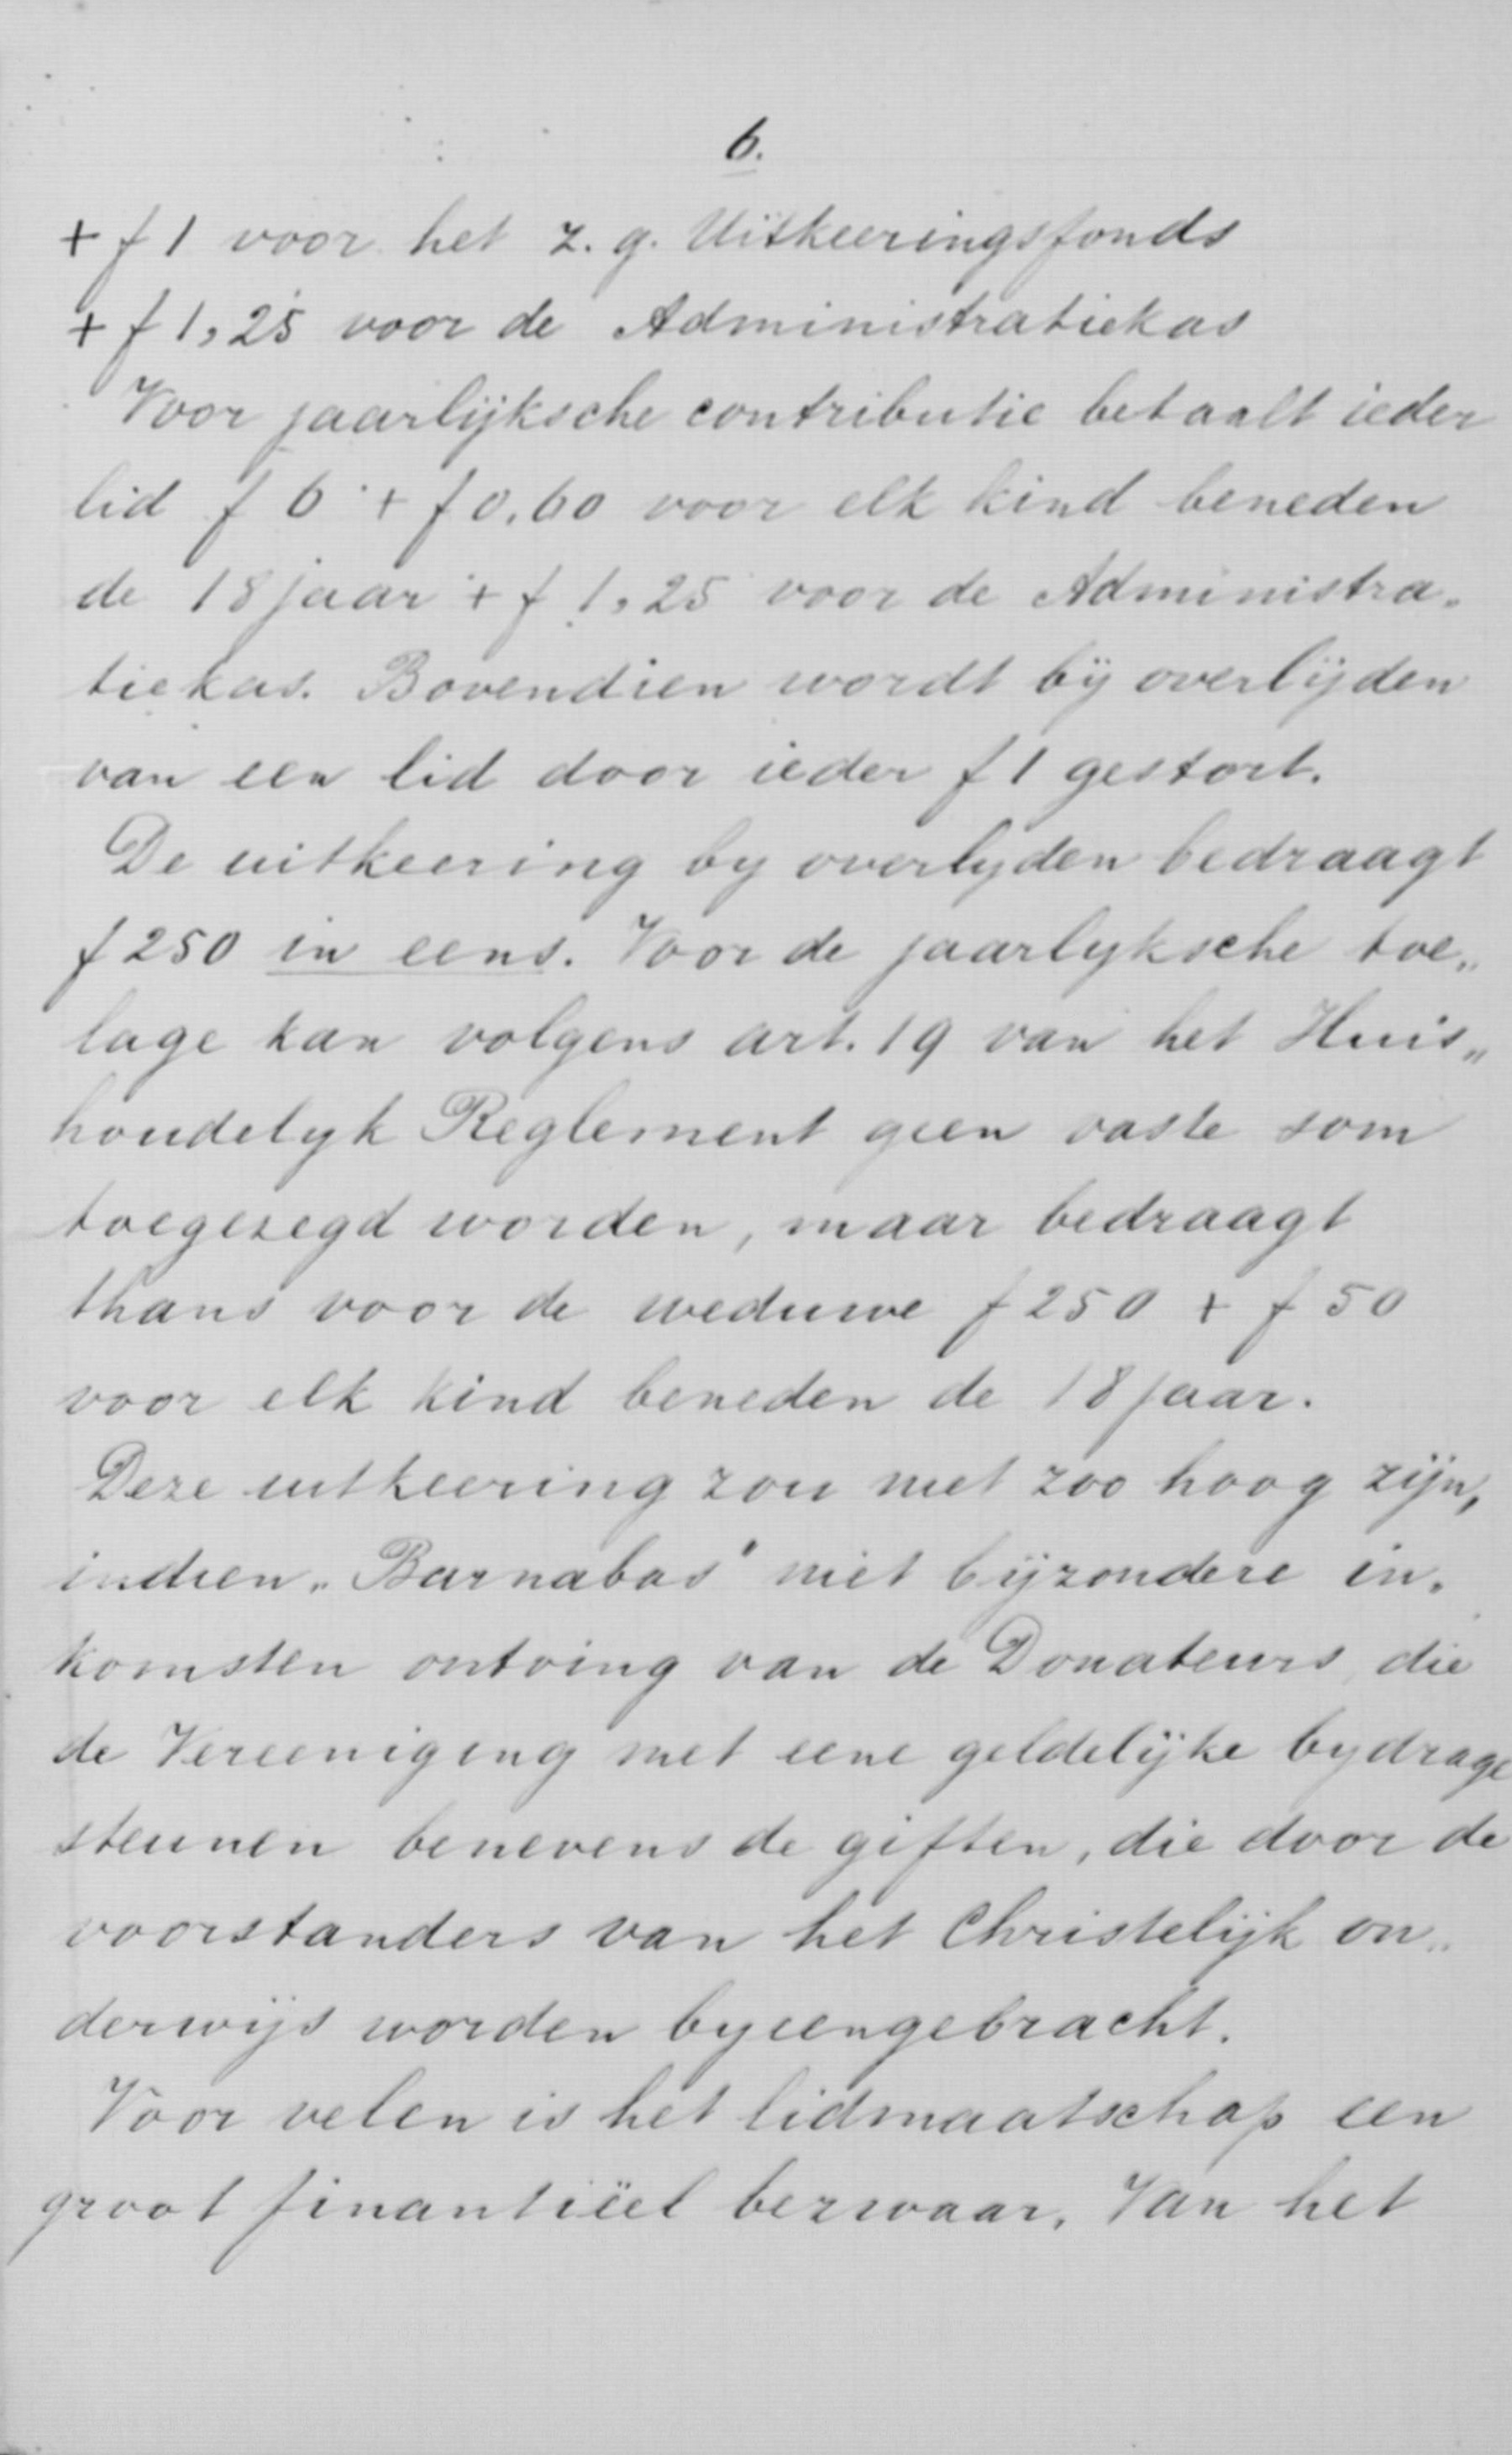 6.
+ f 1 voor het z. g. Uitkeeringsfonds
+ f 1,25 voor de Administratiekas
Voor jaarlijksche contributie betaalt ieder
lid f 6 + f 0.60 voor elk kind beneden
de 18 jaar + f 1,25 voor de Administra„
tiekas. Bovendien wordt bij overlijden
van een lid door ieder f 1 gestort.
De uitkeering by overlyden bedraagt
f 250 in eens. Voor de jaarlyksche toe„
lage kan volgens art. 19 van het Huis„
houdelyk Reglement geen vaste som
toegezegd worden, maar bedraagt
thans voor de weduwe f 250 + f 50
voor elk kind beneden de 18 jaar.
Deze uitkeering zou niet zoo hoog zijn,
indien „Barnabas" niet bijzondere in„
komsten ontving van de Donateurs, die
de Vereeniging met eene geldelijke bydrage
steunen benevens de giften, die door de
voorstanders van het Christelijk on„
derwijs worden byeengebracht.
Voor velen is het lidmaatschap een
groot finantiëel bezwaar. Van het